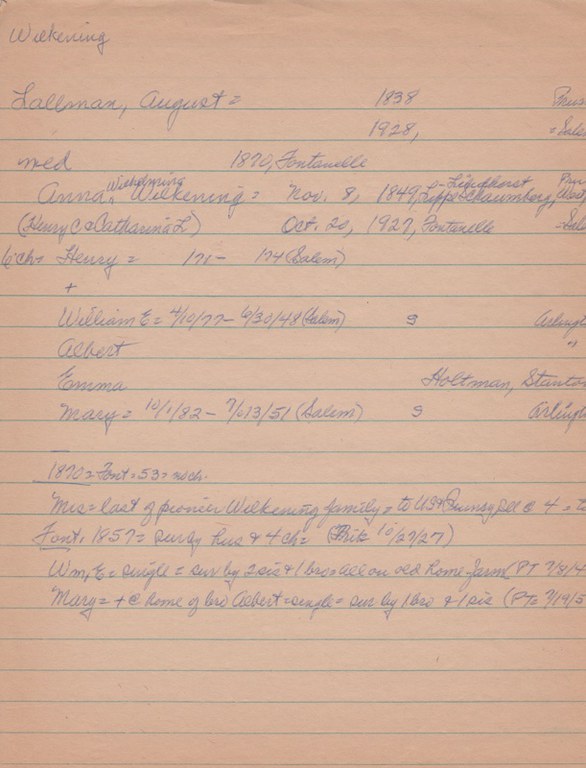 Wilkening
Lallman, August = 1838 Prus
1928, = Salem
med 1870, Fontanelle
Anna Wilhelmina Wilkening = Nov. 8, 1849, Lippe Schaumburg,
(Henry C & Catharina L) Oct. 20, 1927, Fontanelle Sale
6 ch = Henry = 171 - 174 (Salem)
+
William E = 4/10/77 - 6/30/48 (Salem) S Arlingt
Albert "
Emma Holtman, Stanto
Mary = 10/1/82 - 7/13/51 (Salem) S Arlingt
1870 = Font = 53 = no ch.
Mrs = last of pioneer Wilkening family = to US & Ill @ 4 = to
Font. 1857 = surv by hus & 4 ch = (Trib 10/27/27)
Wm. E = single = sur by 2 sis & 1 bro = all on old home-farm (PT 7/8/4
Mary = + @ home of bro Albert = single = sur by 1 bro & 1 sis (PT = 7/19/5